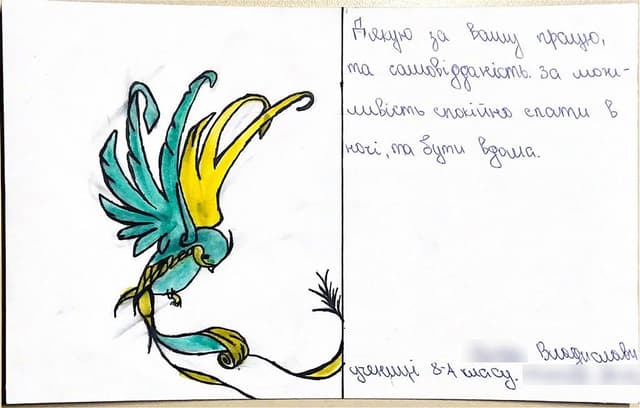 Дякую за вашу працю,
та самовідданість. За мож-
ливість спокійно спати в
ночі, та бути вдома.
Владислави
учениці 8-А класу.